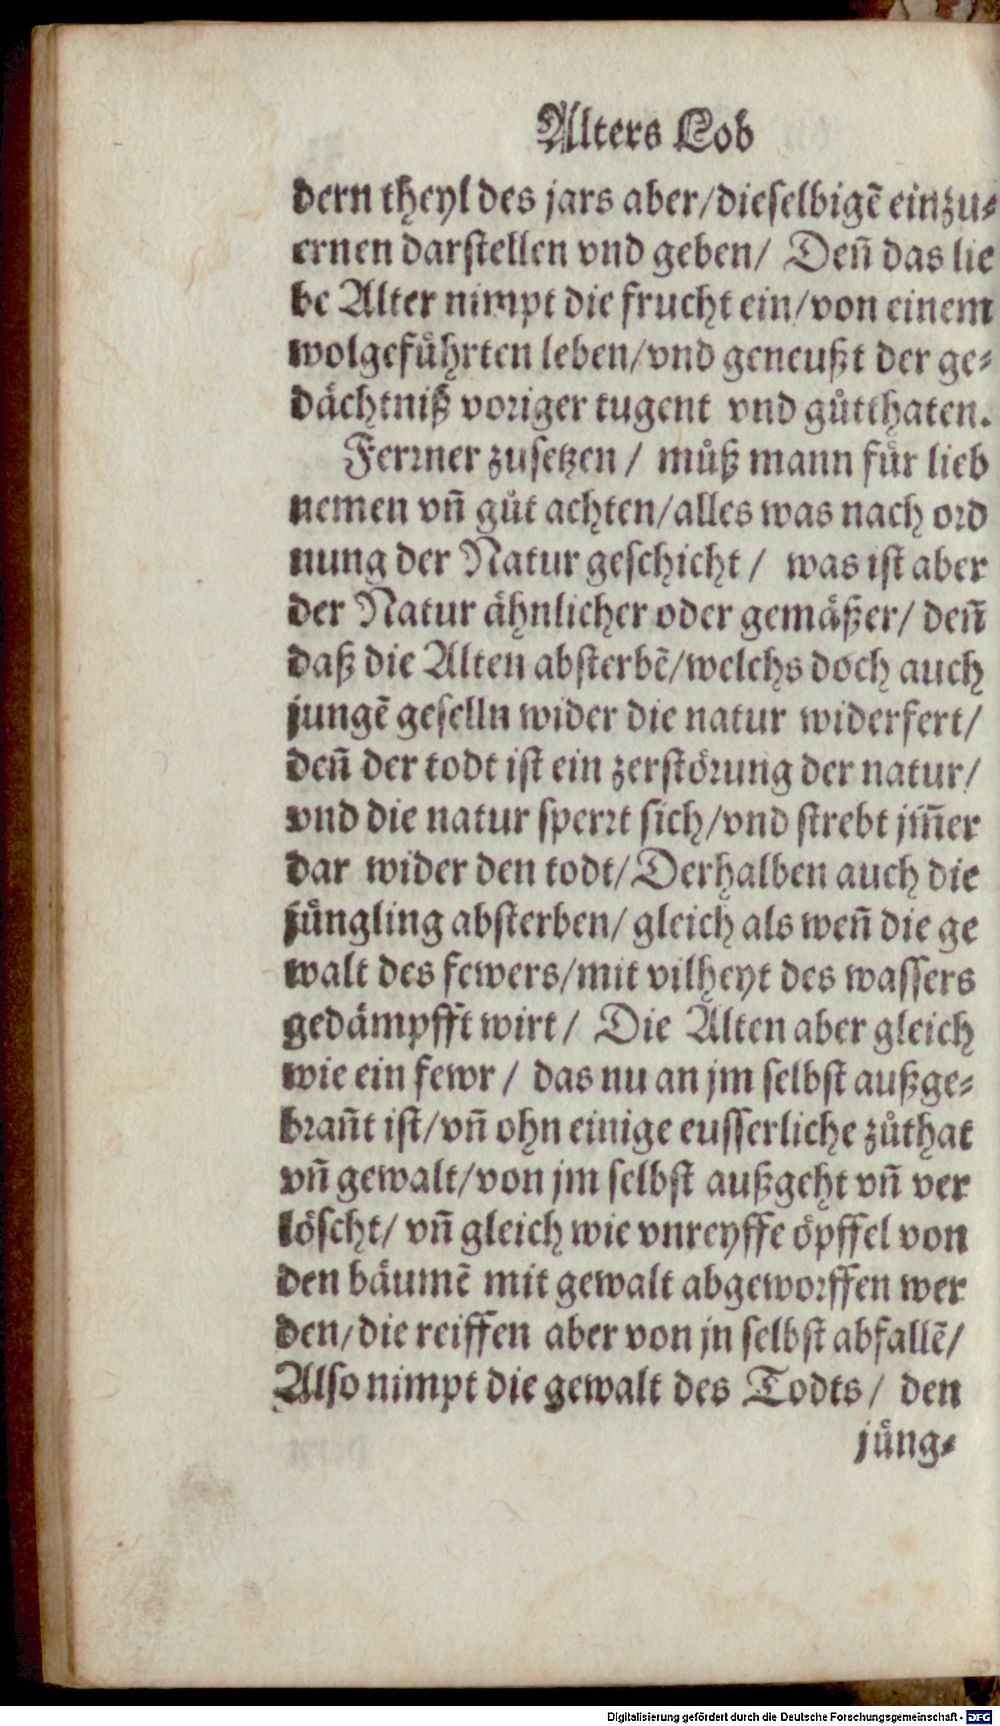 Alters Lob
dern theyl des jars aber/dieselbigẽ einzu⸗
ernen darstellen vnd geben/ Deñ das lie
be Alter nimpt die frucht ein/von einem
wolgefuͤhrten leben/vnd geneußt der ge⸗
daͤchtniß voriger tugent vnd guͤtthaten.
Ferrner zusetzen / muͤß mann fuͤr lieb
nemen vñ guͤt achten/alles was nach ord
nung der Natur geschicht / was ist aber
der Natur aͤhnlicher oder gemaͤßer/ deñ
daß die Alten absterbẽ/welchs doch auch
jungẽ geselln wider die natur widerfert/
deñ der todt ist ein zerstoͤrung der natur/
vnd die natur sperrt sich/vnd strebt jm̃er
dar wider den todt/Derhalben auch die
juͤngling absterben/ gleich als weñ die ge
walt des fewers/mit vilheyt des wassers
gedaͤmpfft wirt / Die Alten aber gleich
wie ein fewr / das nu an jm selbst außge⸗
brañt ist/vñ ohn einige eusserliche zuͦthat
vñ gewalt/von jm selbst außgeht vñ ver
loͤscht/ vñ gleich wie vnreyffe oͤpffel von
den baͤumẽ mit gewalt abgeworffen wer
den/die reiffen aber von jn selbst abfallẽ/
Also nimpt die gewalt des Todts / den
juͤng⸗
Digitalisierung gefördert durch die Deutsche Forschungsgemeinschaft - DFG